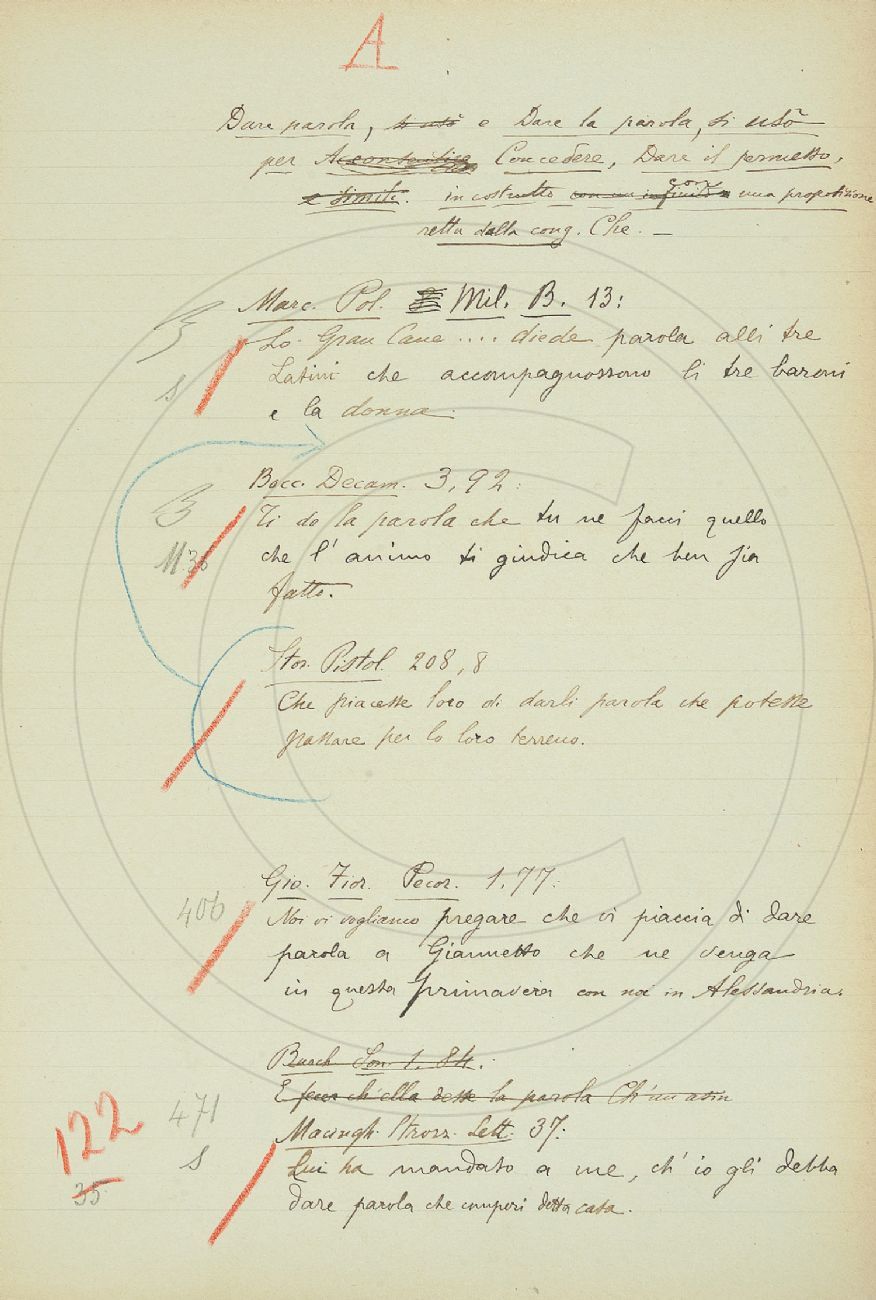 A
Dare parola, si usò e Dare la parola, si usò
per Acconsentire Concedere, Dare il permesso,
e simili. in costrutto con un infinito con una proposizione
retta dalla cong. Che. —
Marc. Pol. Mil. B. 13:
B
Lo Gran Cane .... diede parola alli tre
S
Latini che accompagnossono li tre baroni
e la donna.
Bocc. Decam. 3, 92:
B
Ti do la parola che tu ne facci quello
M. 36
che l'animo ti giudica che ben sia
fatto.
Stor. Pistol. 208, 8
Che piacesse loro di darli parola che potesse
passare per lo loro terreno.
Gio. Fior. Pecor. 1. 77:
406
Noi vi vogliamo pregare che vi piaccia di dare
parola a Giannetto che ne venga
in questa primavera con noi in Alessandria.
Burch. Son. 1. 84.:
E ch'ella desse la parola Ch'un asin
471
Macingh. Strozz. Lett. 37:
122
S
Lui ha mandato a me, ch'io gli debba
35
dare parola che comperi detta casa.